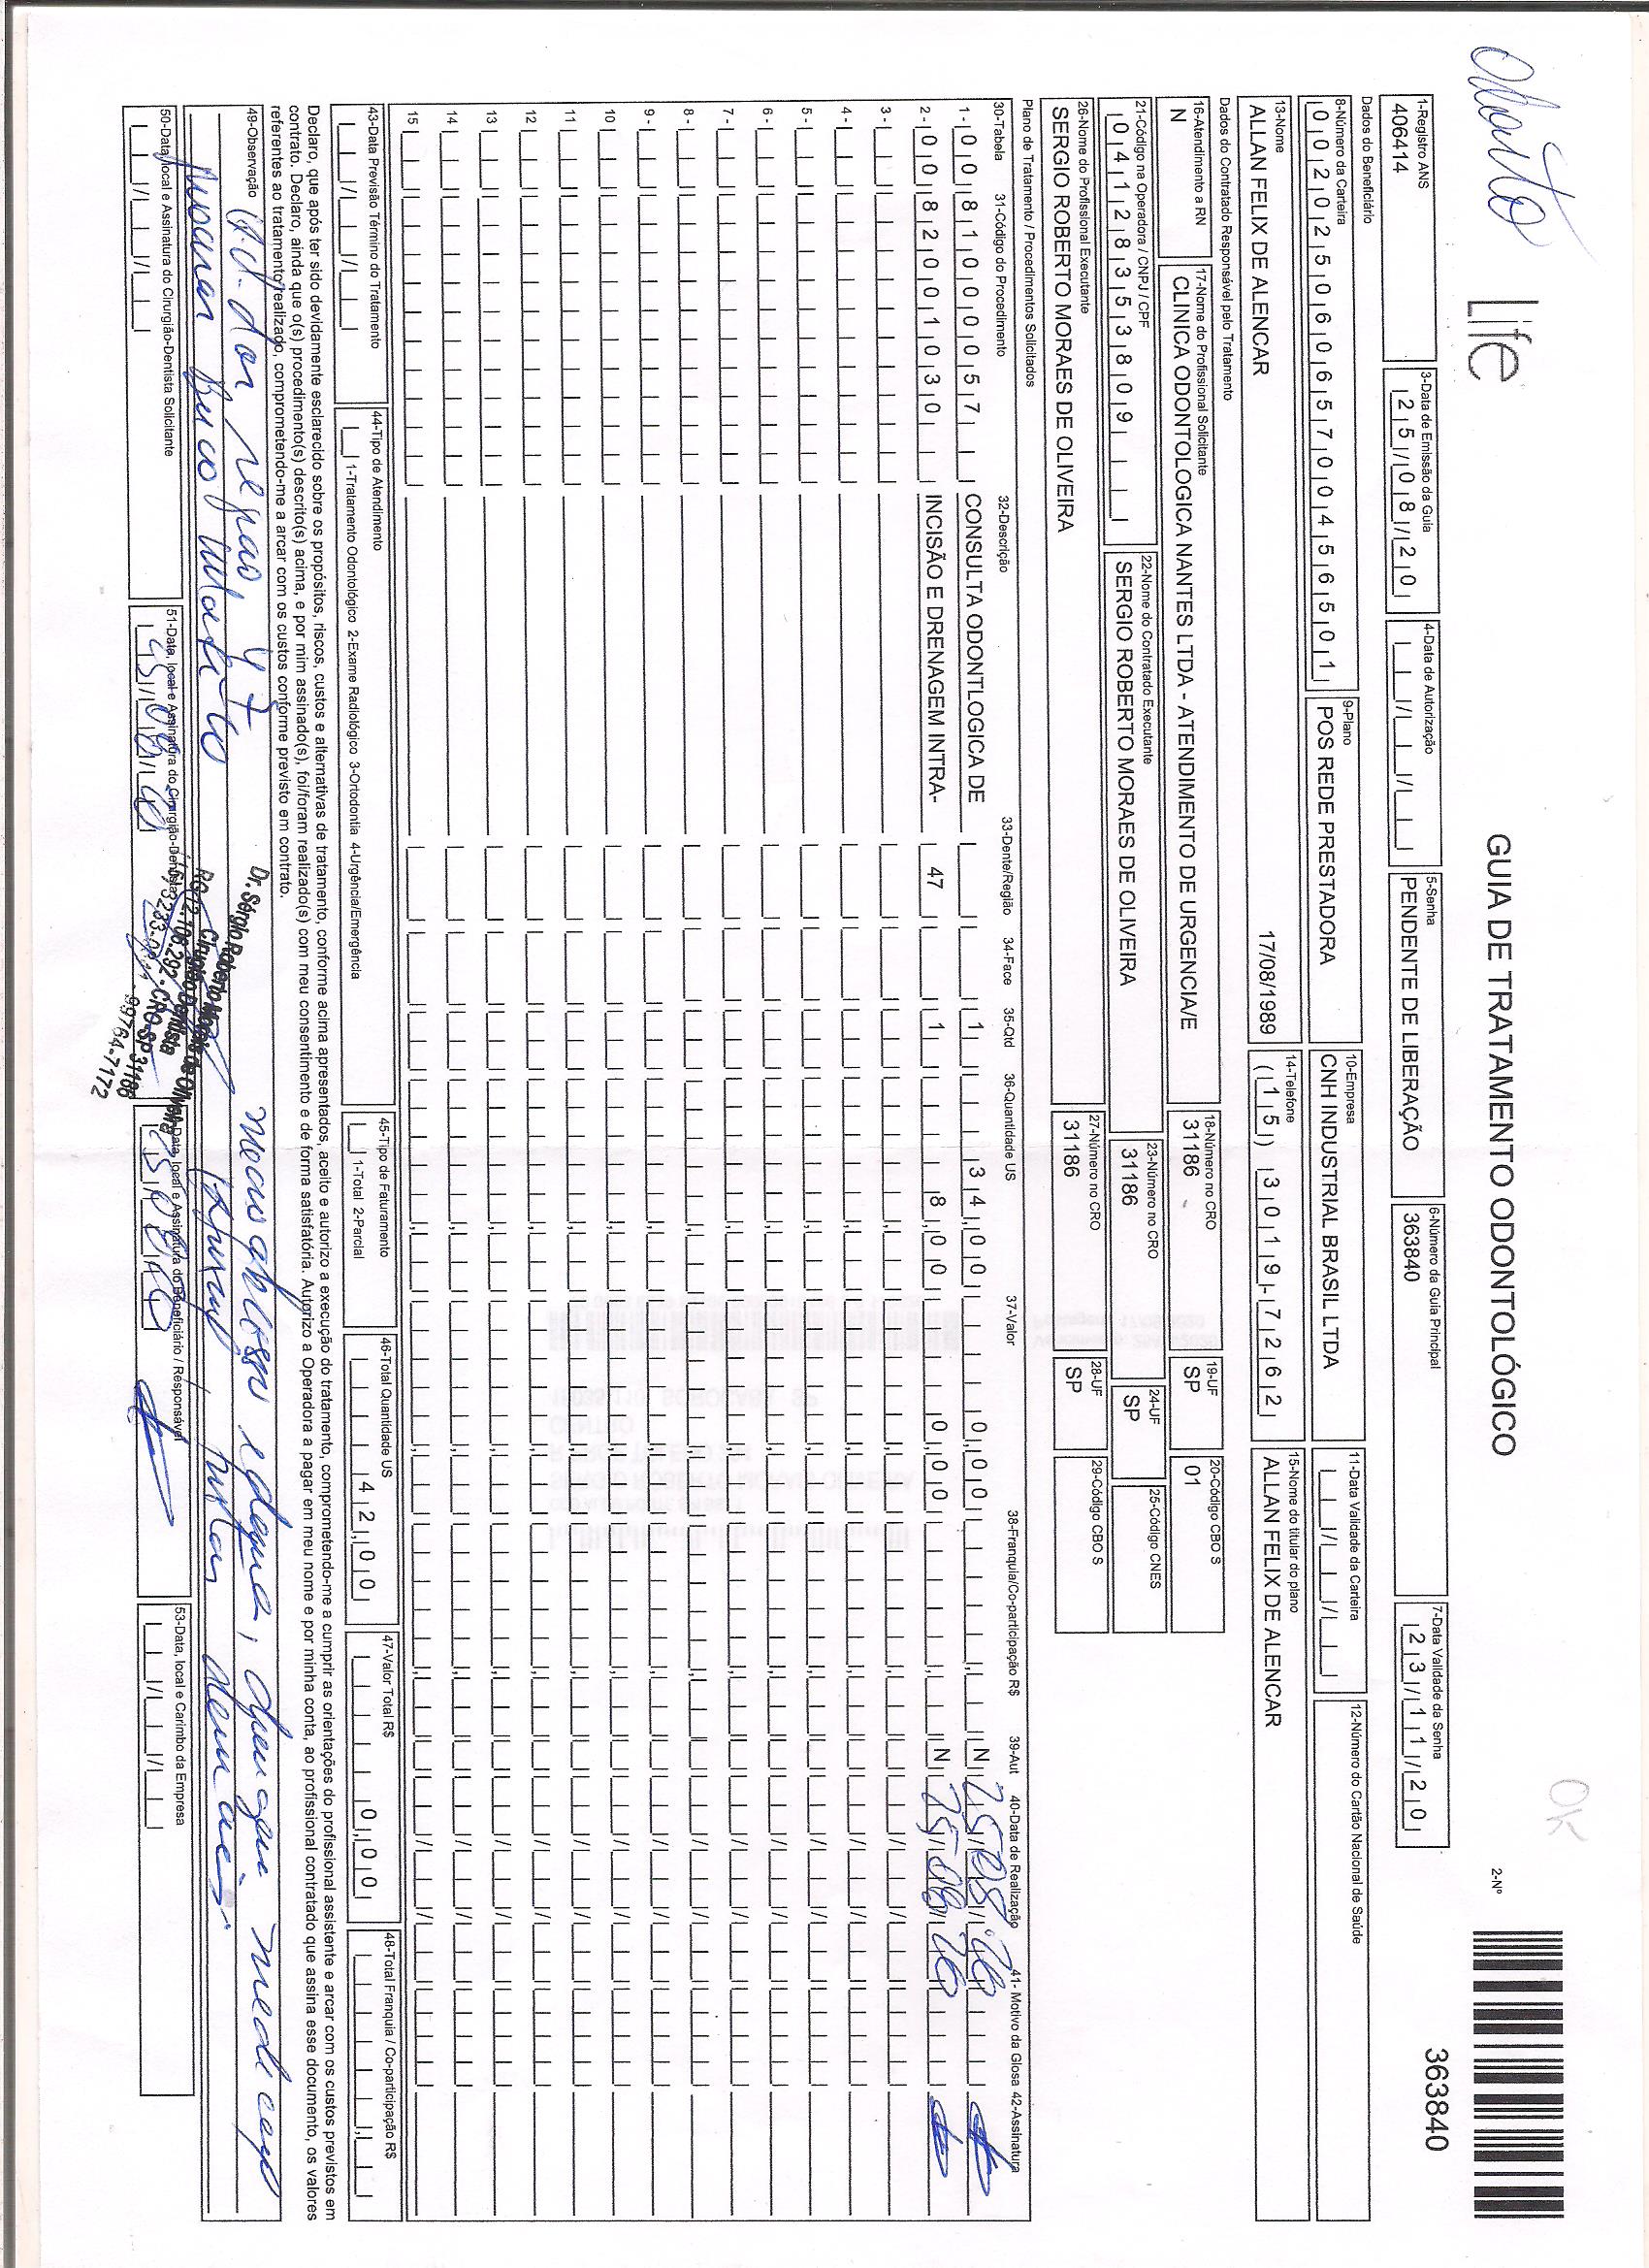 Odonto Life
GUIA DE TRATAMENTO ODONTOLÓGICO
OK
2-Nº
363840
1-Registro ANS
406414
3-Data de Emissão da Guia
25/08/20
4-Data de Autorização
5-Senha
PENDENTE DE LIBERAÇÃO
6-Número da Guia Principal
363840
7-Data Validade da Senha
23/11/20
Dados do Beneficiário
8-Número da Carteira
00202506065700456501
9-Plano
POS REDE PRESTADORA
10-Empresa
CNH INDUSTRIAL BRASIL LTDA
11-Data Validade da Carteira
12-Número do Cartão Nacional de Saúde
13-Nome
ALLAN FELIX DE ALENCAR 17/08/1989
14-Telefone
(15) 3019-7262
15-Nome do titular do plano
ALLAN FELIX DE ALENCAR
Dados do Contratado Responsável pelo Tratamento
16-Atendimento a RN
N
17-Nome do Profissional Solicitante
CLINICA ODONTOLOGICA NANTES LTDA - ATENDIMENTO DE URGENCIA/E
18-Número no CRO
31186
19-UF
SP
20-Código CBO S
01
21-Código na Operadora / CNPJ / CPF
04128353809
22-Nome do Contratado Executante
SERGIO ROBERTO MORAES DE OLIVEIRA
23-Número no CRO
31186
24-UF
SP
25-Código CNES
26-Nome do Profissional Executante
SERGIO ROBERTO MORAES DE OLIVEIRA
27-Número no CRO
31186
28-UF
SP
29-Código CBO S
Plano de Tratamento / Procedimentos Solicitados
30-Tabela 31-Código do Procedimento 32-Descrição 33-Dente/Região 34-Face 35-Qtd 36-Quantidade US 37-Valor 38-Franquia/Co-participação R$ 39-Aut 40-Data de Realização 41- Motivo da Glosa 42-Assinatura
1- 00 81000057 CONSULTA ODONTLOGICA DE 1 34,00 0,00 N 25/08/20
2- 00 82001030 INCISÃO E DRENAGEM INTRA- 47 1 8,00 0,00 N 25/08/20
3 -
4 -
5 -
6 -
7 -
8 -
9 -
10
11
12
13
14
15
43-Data Previsão Término do Tratamento
44-Tipo de Atendimento
1-Tratamento Odontológico 2-Exame Radiológico 3-Ortodontia 4-Urgência/Emergência
45-Tipo de Faturamento
1-Total 2-Parcial
46-Total Quantidade US
42,00
47-Valor Total R$
0,00
48-Total Franquia / Co-participação R$
Declaro, que após ter sido devidamente esclarecido sobre os propósitos, riscos, custos e alternativas de tratamento, conforme acima apresentados, aceito e autorizo a execução do tratamento, comprometendo-me a cumprir as orientações do profissional assistente e arcar com os custos previstos em
contrato. Declaro, ainda que o(s) procedimento(s) descrito(s) acima, e por mim assinado(s), foi/foram realizado(s) com meu consentimento e de forma satisfatória. Autorizo a Operadora a pagar em meu nome e por minha conta, ao profissional contratado que assina esse documento, os valores
referentes ao tratamento realizado, comprometendo-me a arcar com os custos conforme previsto em contrato.
49-Observação
dor região 47
Dr. Sérgio Roberto Moraes de Oliveira
Cirurgião Dentista
RG 12.108.292 - CRO SP 31186
99764-7172
50-Data, local e Assinatura do Cirurgião-Dentista Solicitante
51-Data, local e Assinatura do Cirurgião-Dentista
25/08/20
52-Data, local e Assinatura do Beneficiário / Responsável
25/08/20
53-Data, local e Carimbo da Empresa